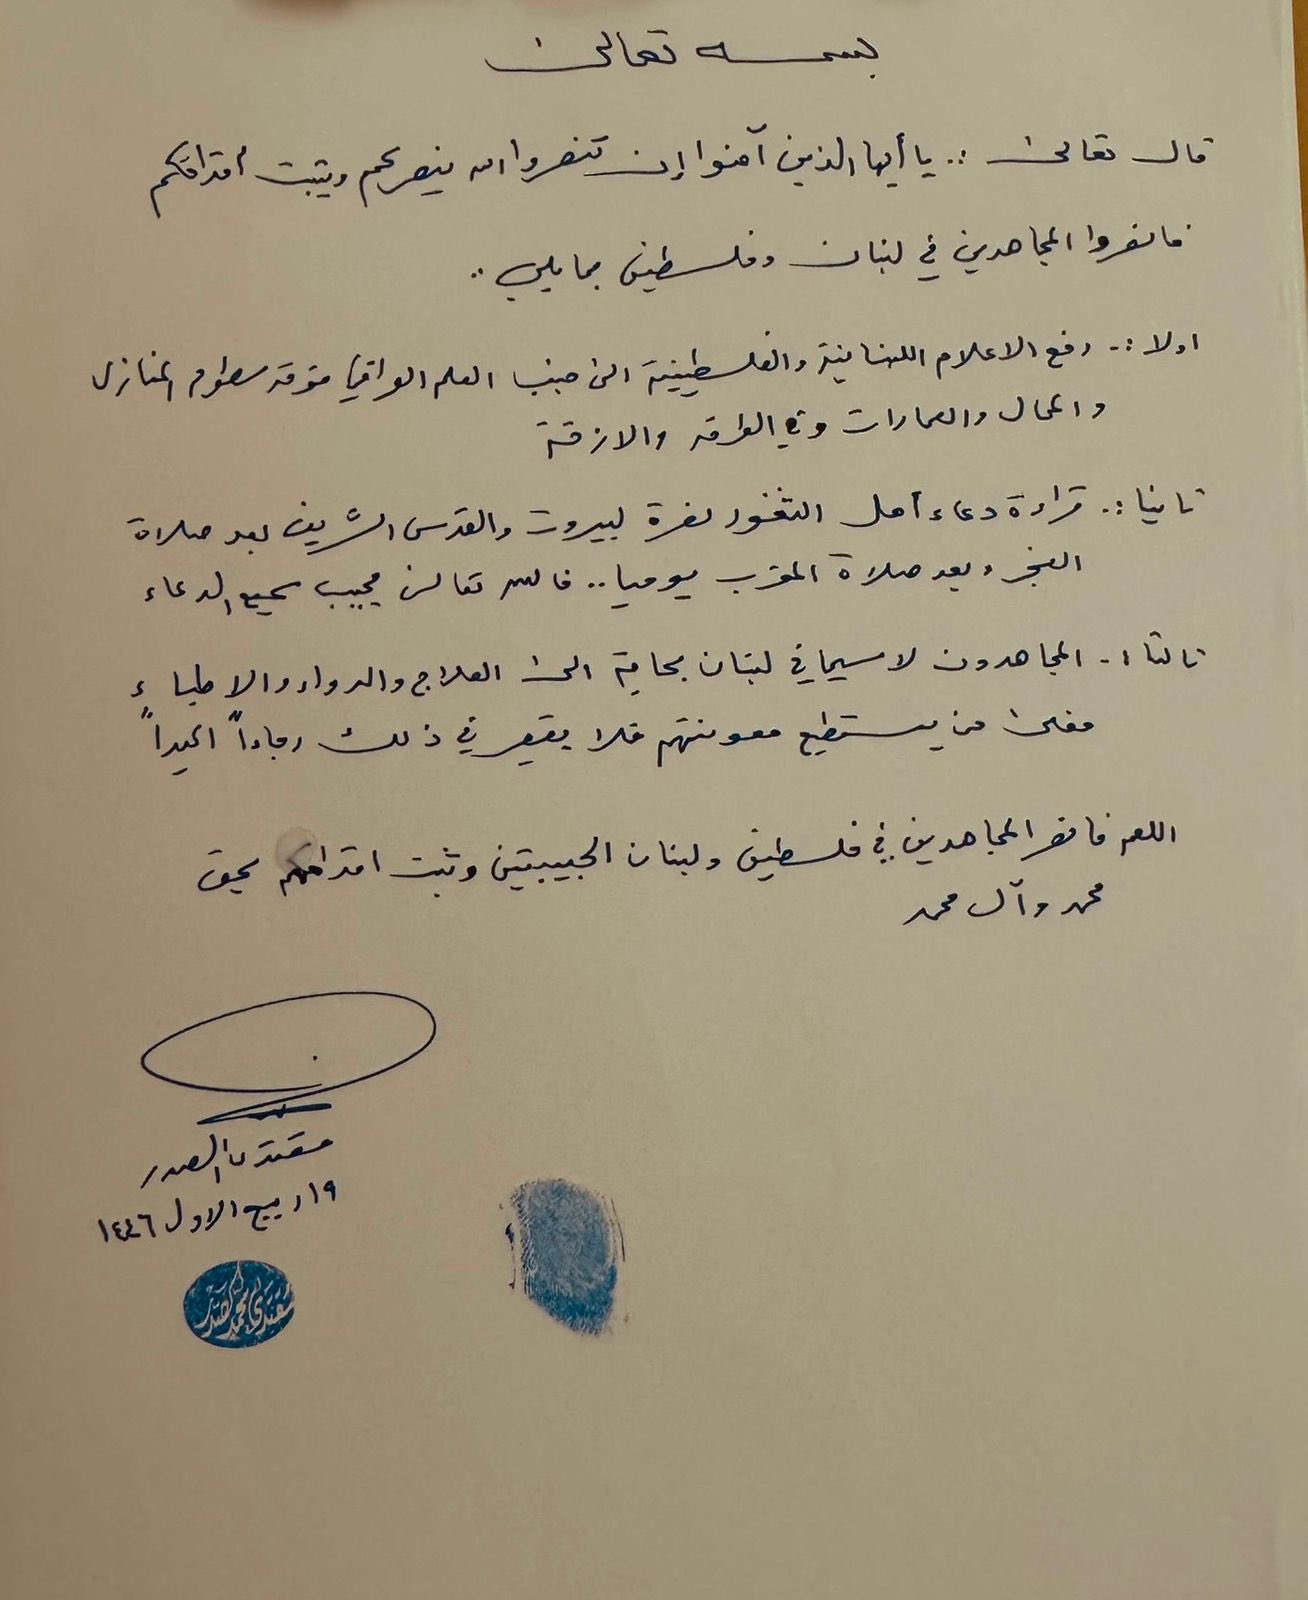 بسمه تعالى
قال تعالى :. يا أيها الذين آمنوا إن تنصروا الله ينصركم ويثبت أقدامكم
فانصروا المجاهدين في لبنان وفلسطين بما يلي ..
اولا :. رفع الاعلام اللبنانية والفلسطينية الى جنب العلم العراقي فوق سطوح المنازل
والمحال والعمارات وفي الطرق والازقة
ثانيا :. قراءة دعاء أهل الثغور لنصرة لبيروت والقدس الشريف بعد صلاة
الفجر وبعد صلاة المغرب يوميا .. فالله تعالى مجيب سميع الدعاء
ثالثا :. المجاهدون لا سيما في لبنان بحاجة الى العلاج والدواء والاطباء
فعلى من يستطيع معونتهم فلا يقصر في ذلك رجاءاً اكيداً
اللهم فانصر المجاهدين في فلسطين ولبنان الحبيبتين وثبت اقدامهم بحق
محمد وآل محمد
مقتدى الصدر
١٩ ربيع الاول ١٤٤٦
مقتدى محمد الصدر